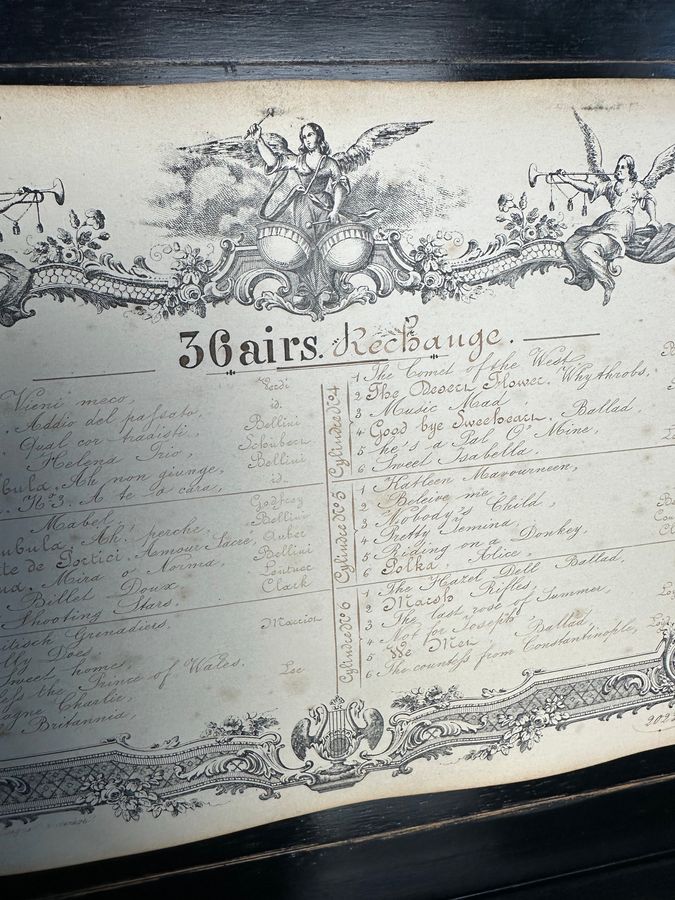 36 airs. Rechange.
Vieni meco, Verdi
Addio del passato, id.
Qual cor tradisti, Bellini
Helena Trio, Schubert
bula, Ah non giunge, Bellini
No. 3. A te o cara, id.
Mabel, Godfrey
mbula, Ah, perche, Bellini
te de Portici, Amour Sacre, Auber
Mira o Norma, Bellini
Billet Doux
Clark
Shooting Stars.
itisch Grenadiers.
lly Does,
Sweet homes,
the Prince of Wales. Lee
Charlie,
Britannia,
Cylindre No 4
1 The Comet of the West
2 The Desert Flower, Whythrobs,
3 Music Mad
4 Good bye Sweetheart, Ballad,
5 he's a Pal O' Mine,
6 Sweet Isabella,
Cylindre No 5
1 Katleen Mavourneen,
2 Beleive me,
3 Nobody's Child,
4 Pretty Jemina,
5 Riding on a Donkey,
6 Polka, Alice,
Cylindre No 6
1 The Hazel Dell Ballad,
2 March Rifles,
3 The last rose of Summer,
4 Not for Joseph
5 We Met Ballad,
6 The countess from Constantinople,